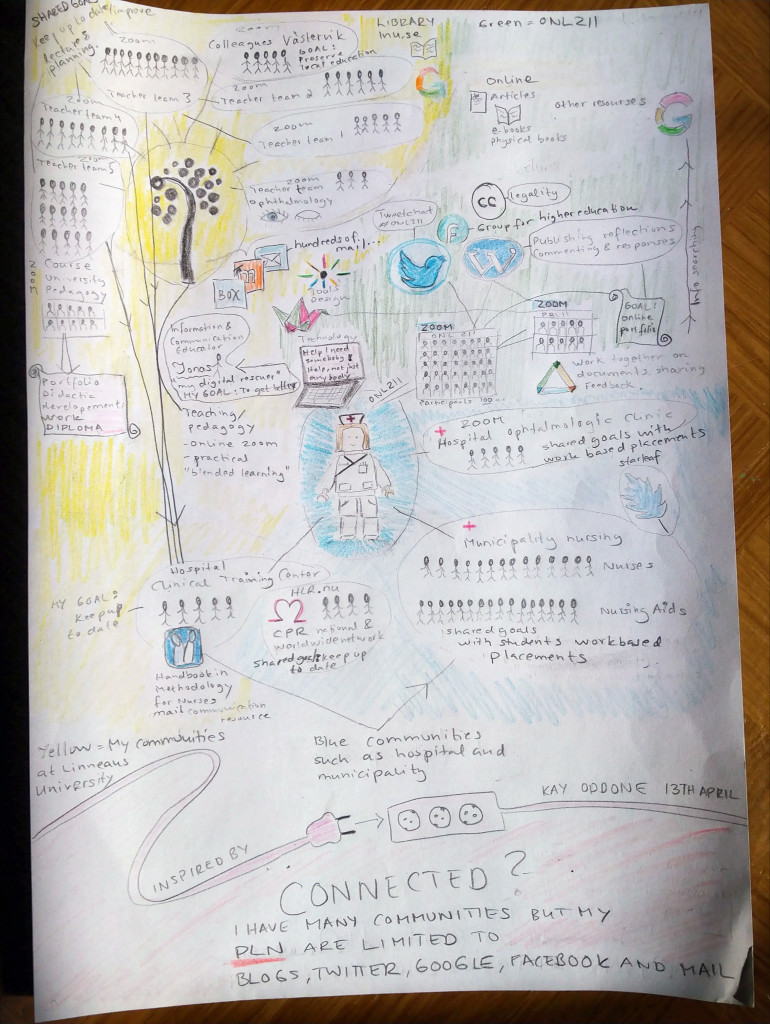 SHARED GOALS
Keep up to date/improve
lecture &
planning.
zoom
Teacher team 3
Colleagues Västervik
GOAL:
Preserve
local education
LIBRARY
lnu.se
Green = ONL211
zoom
Teacher team 2
Online
articles
e-books
physical books
other resourses
zoom
Teacher team 4
zoom
Teacher team 1
zoom
Teacher team 5
zoom
Teacher team
ophthalmology
CC
legality
Group for higher education
Tweetchat
#ONL211
W
Publishing reflections
Commenting & responses
Info searching
hundreds of
mail...
BOX
Tools
Design
ZOOM
Course
University
Pedagogy
ZOOM
ONL 211
participants 100
ZOOM
PBL 11
GOAL:
online
portfolio
Information &
Communication
Educator
Jonas
"my digital rescuer"
MY GOAL: To get better
Technology
Help I need
somebody
Help, not just
any body
ONL211
work together on
documents, sharing
Feedback.
Portfolio
Didactic
developement
work
DIPLOMA
Teaching/
pedagogy
- online zoom
- practical
"blended learning"
ZOOM
Hospital Ophtalmologic Clinic
shared goals with
work based placements
starleaf
Municipality nursing
Nurses
Nursing Aids
shared goals
with students workbased
placements
Hospital
Clinical Training Center
MY GOAL:
keep up
to date
HLR.nu
CPR national &
worldwide network
shared goals keep up
to date
Handbook in
Methodology
for Nurses
mail communication
resource
Yellow = My communities
at Linneaus
University
Blue communities
such as hospital and
municipality
INSPIRED BY
KAY ODDONE 13TH APRIL
CONNECTED?
I HAVE MANY COMMUNITIES BUT MY
PLN ARE LIMITED TO
BLOGS, TWITTER, GOOGLE, FACEBOOK AND MAIL